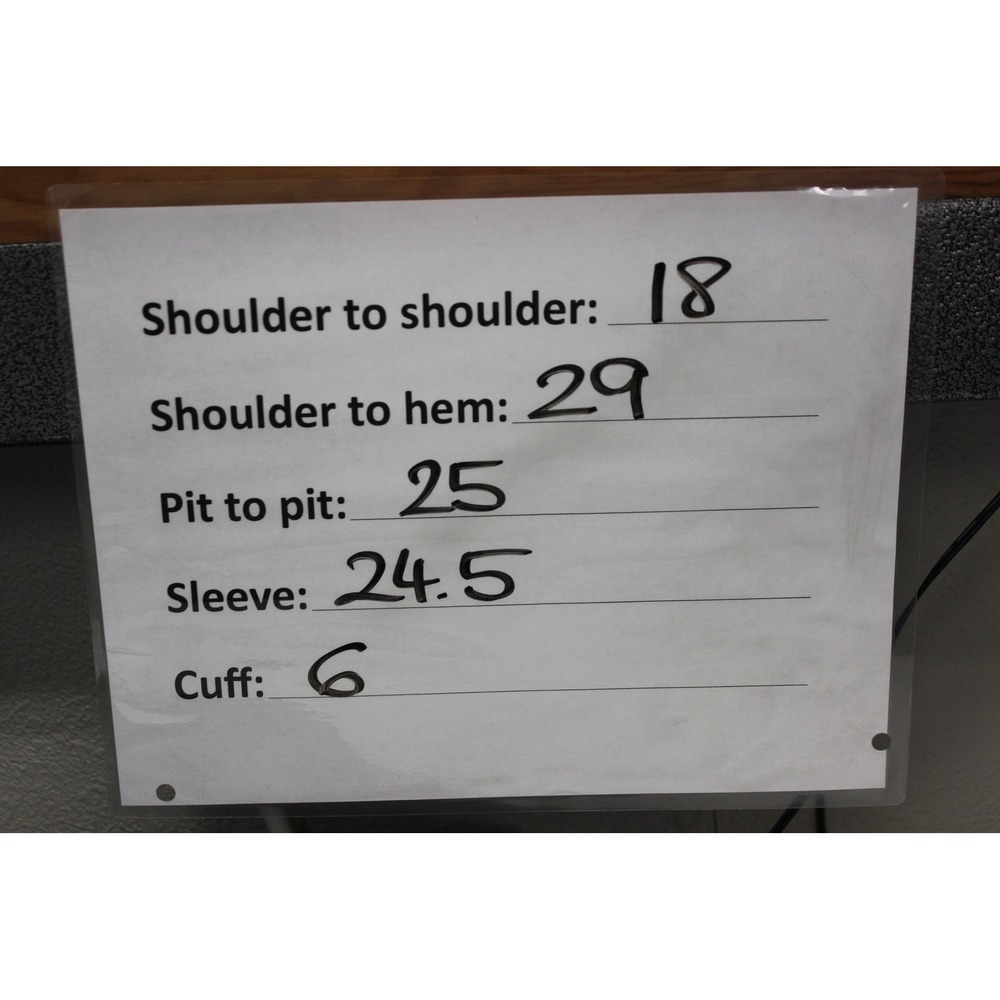 Shoulder to shoulder: 18
Shoulder to hem: 29
Pit to pit: 25
Sleeve: 24.5
Cuff: 6